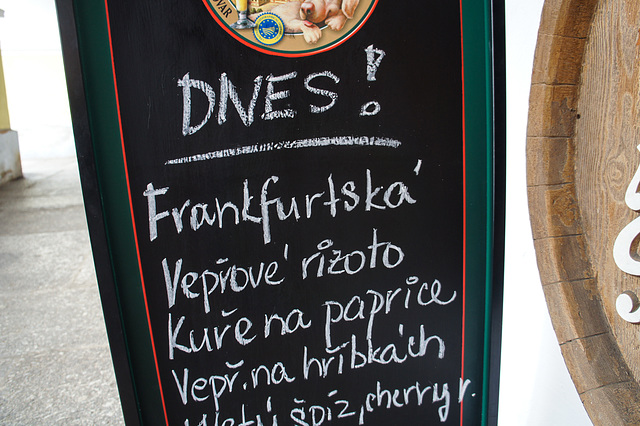 VAR
DNES!
Frankfurtská
Vepřové rizoto
Kuře na paprice
Vepř. na hříbkách
špíz, cherry r.